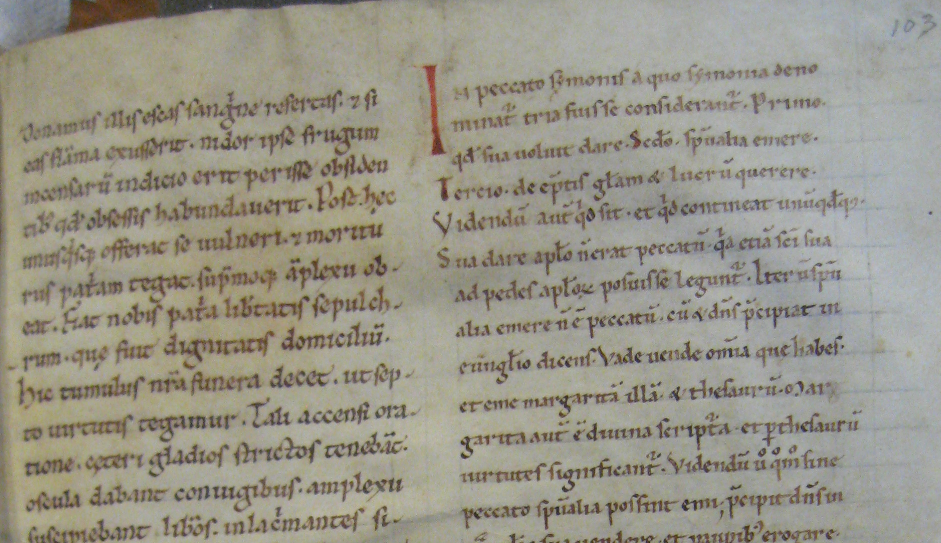 103
Donamus illis escas sanguine refertas. & si
eas flāma exusserit. nidor ipse frugum
incensarū indicio erit perisse obsiden
tibꝰ qđ obsessis habundauerit. Post hęc
unusq̇sq; offerat se uulneri. & moritu
rus patͣam tegat. sup̄moq; āplexu ob-
eat. Fiat nobis patͣa lib̄tatis sepulch-
rum. quę fuit dignitatis domiciliū.
hic tumulus nr̄a funera decet. ut sep-
to uirtutis tegamur. Tali accensi ora-
tione. cęteri gladios strictos tenebāt.
oscula dabant coniugibus. amplexu
suscipiebant lib̄os. inlacͥmantes si-
In peccato symonis a quo symonia deno
minat᷑ tria fuisse considerant᷑. Primo.
qđ sua uoluit dare. Scđo. sp̄ualia emere.
Tercio. de ēptis gl̄am & lucrū querere.
Videndū aut̄ qͥd sit. et qͥd contineat unūqđq;.
Sua dare aplo n̄ erat peccatū. qͥa etiā sc̄i sua
ad pedes aploꝝ posuisse legunt᷑. Iterū sp̄u
alia emere n̄ ē peccatū. cū & dn̄s p̄cipiat in
euungl̄io dicens. Vade uende om̄ia que habes.
et eme margaritā illā. & thesaurū. Mar
garita aut̄ ē diuina scriptͣa. et ꝑ thesaurū
uirtutes significant᷑. Videndū ů qͦm sine
peccato sp̄ualia possint emi; p̄cipit dn̄s in
sua uendere. et paupibꝰ erogare.